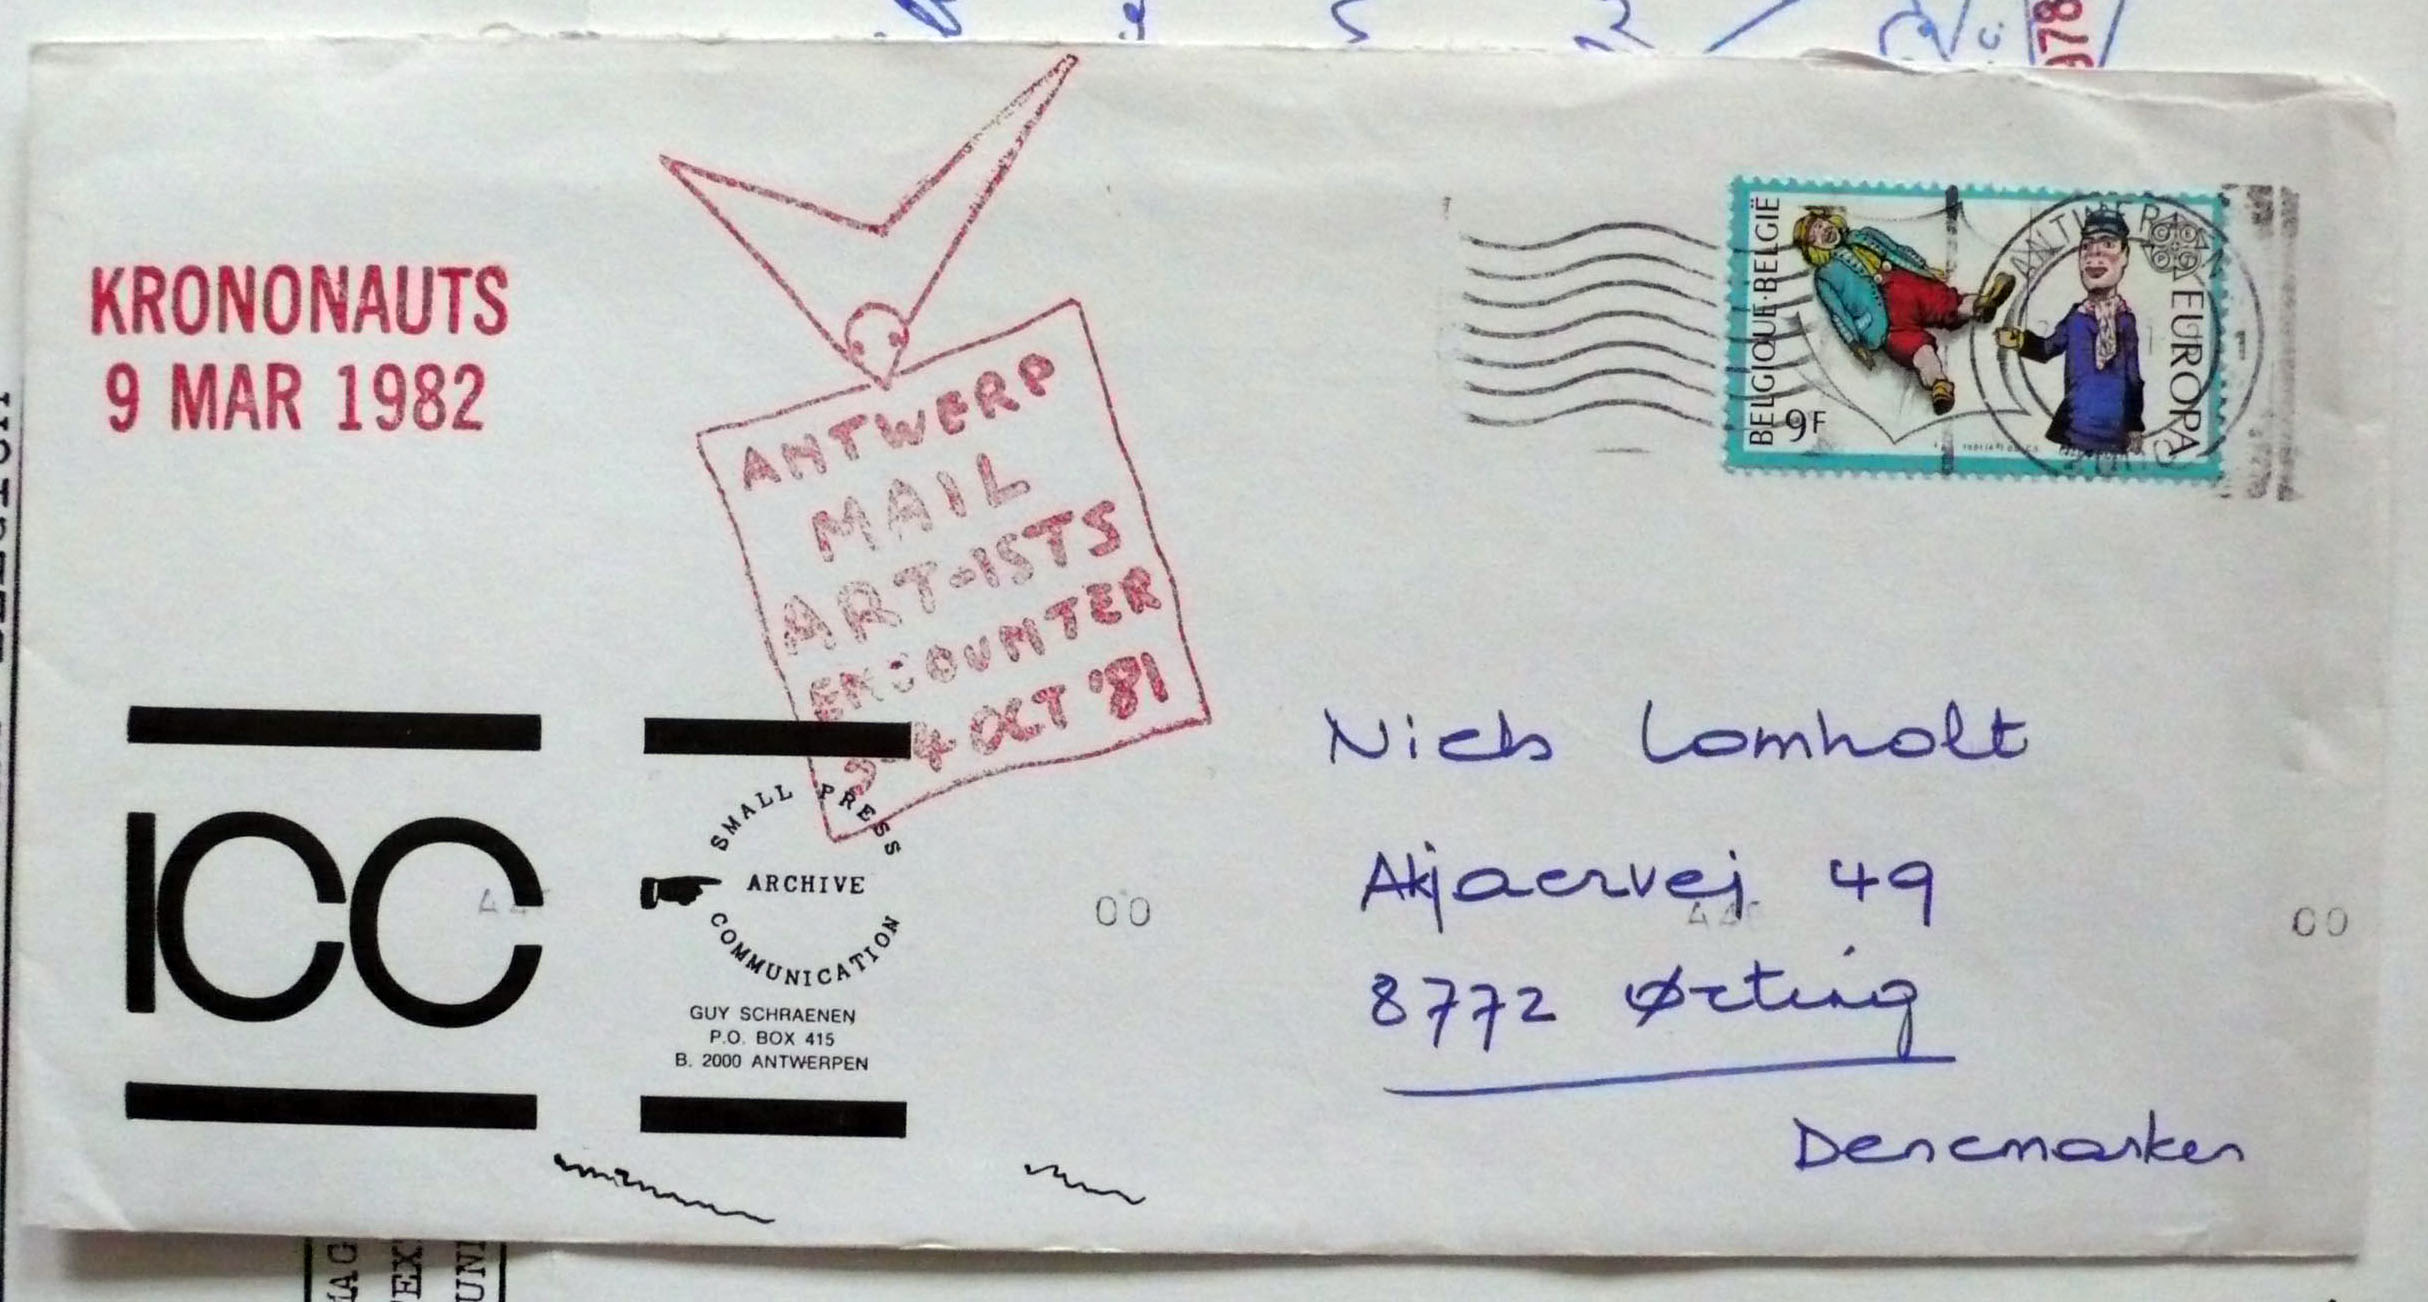 978
KRONONAUTS
9 MAR 1982
ANTWERP
MAIL
ART-ISTS
ENCOUNTER
3-4 OCT '81
BELGIQUE·BELGIË
9F
EUROPA
ANTWERPEN
ICC
SMALL PRESS
ARCHIVE
COMMUNICATION
GUY SCHRAENEN
P.O. BOX 415
B. 2000 ANTWERPEN
00
Niels Lomholt
Akjaervej 49
8772 Ørting
Denemarken
00